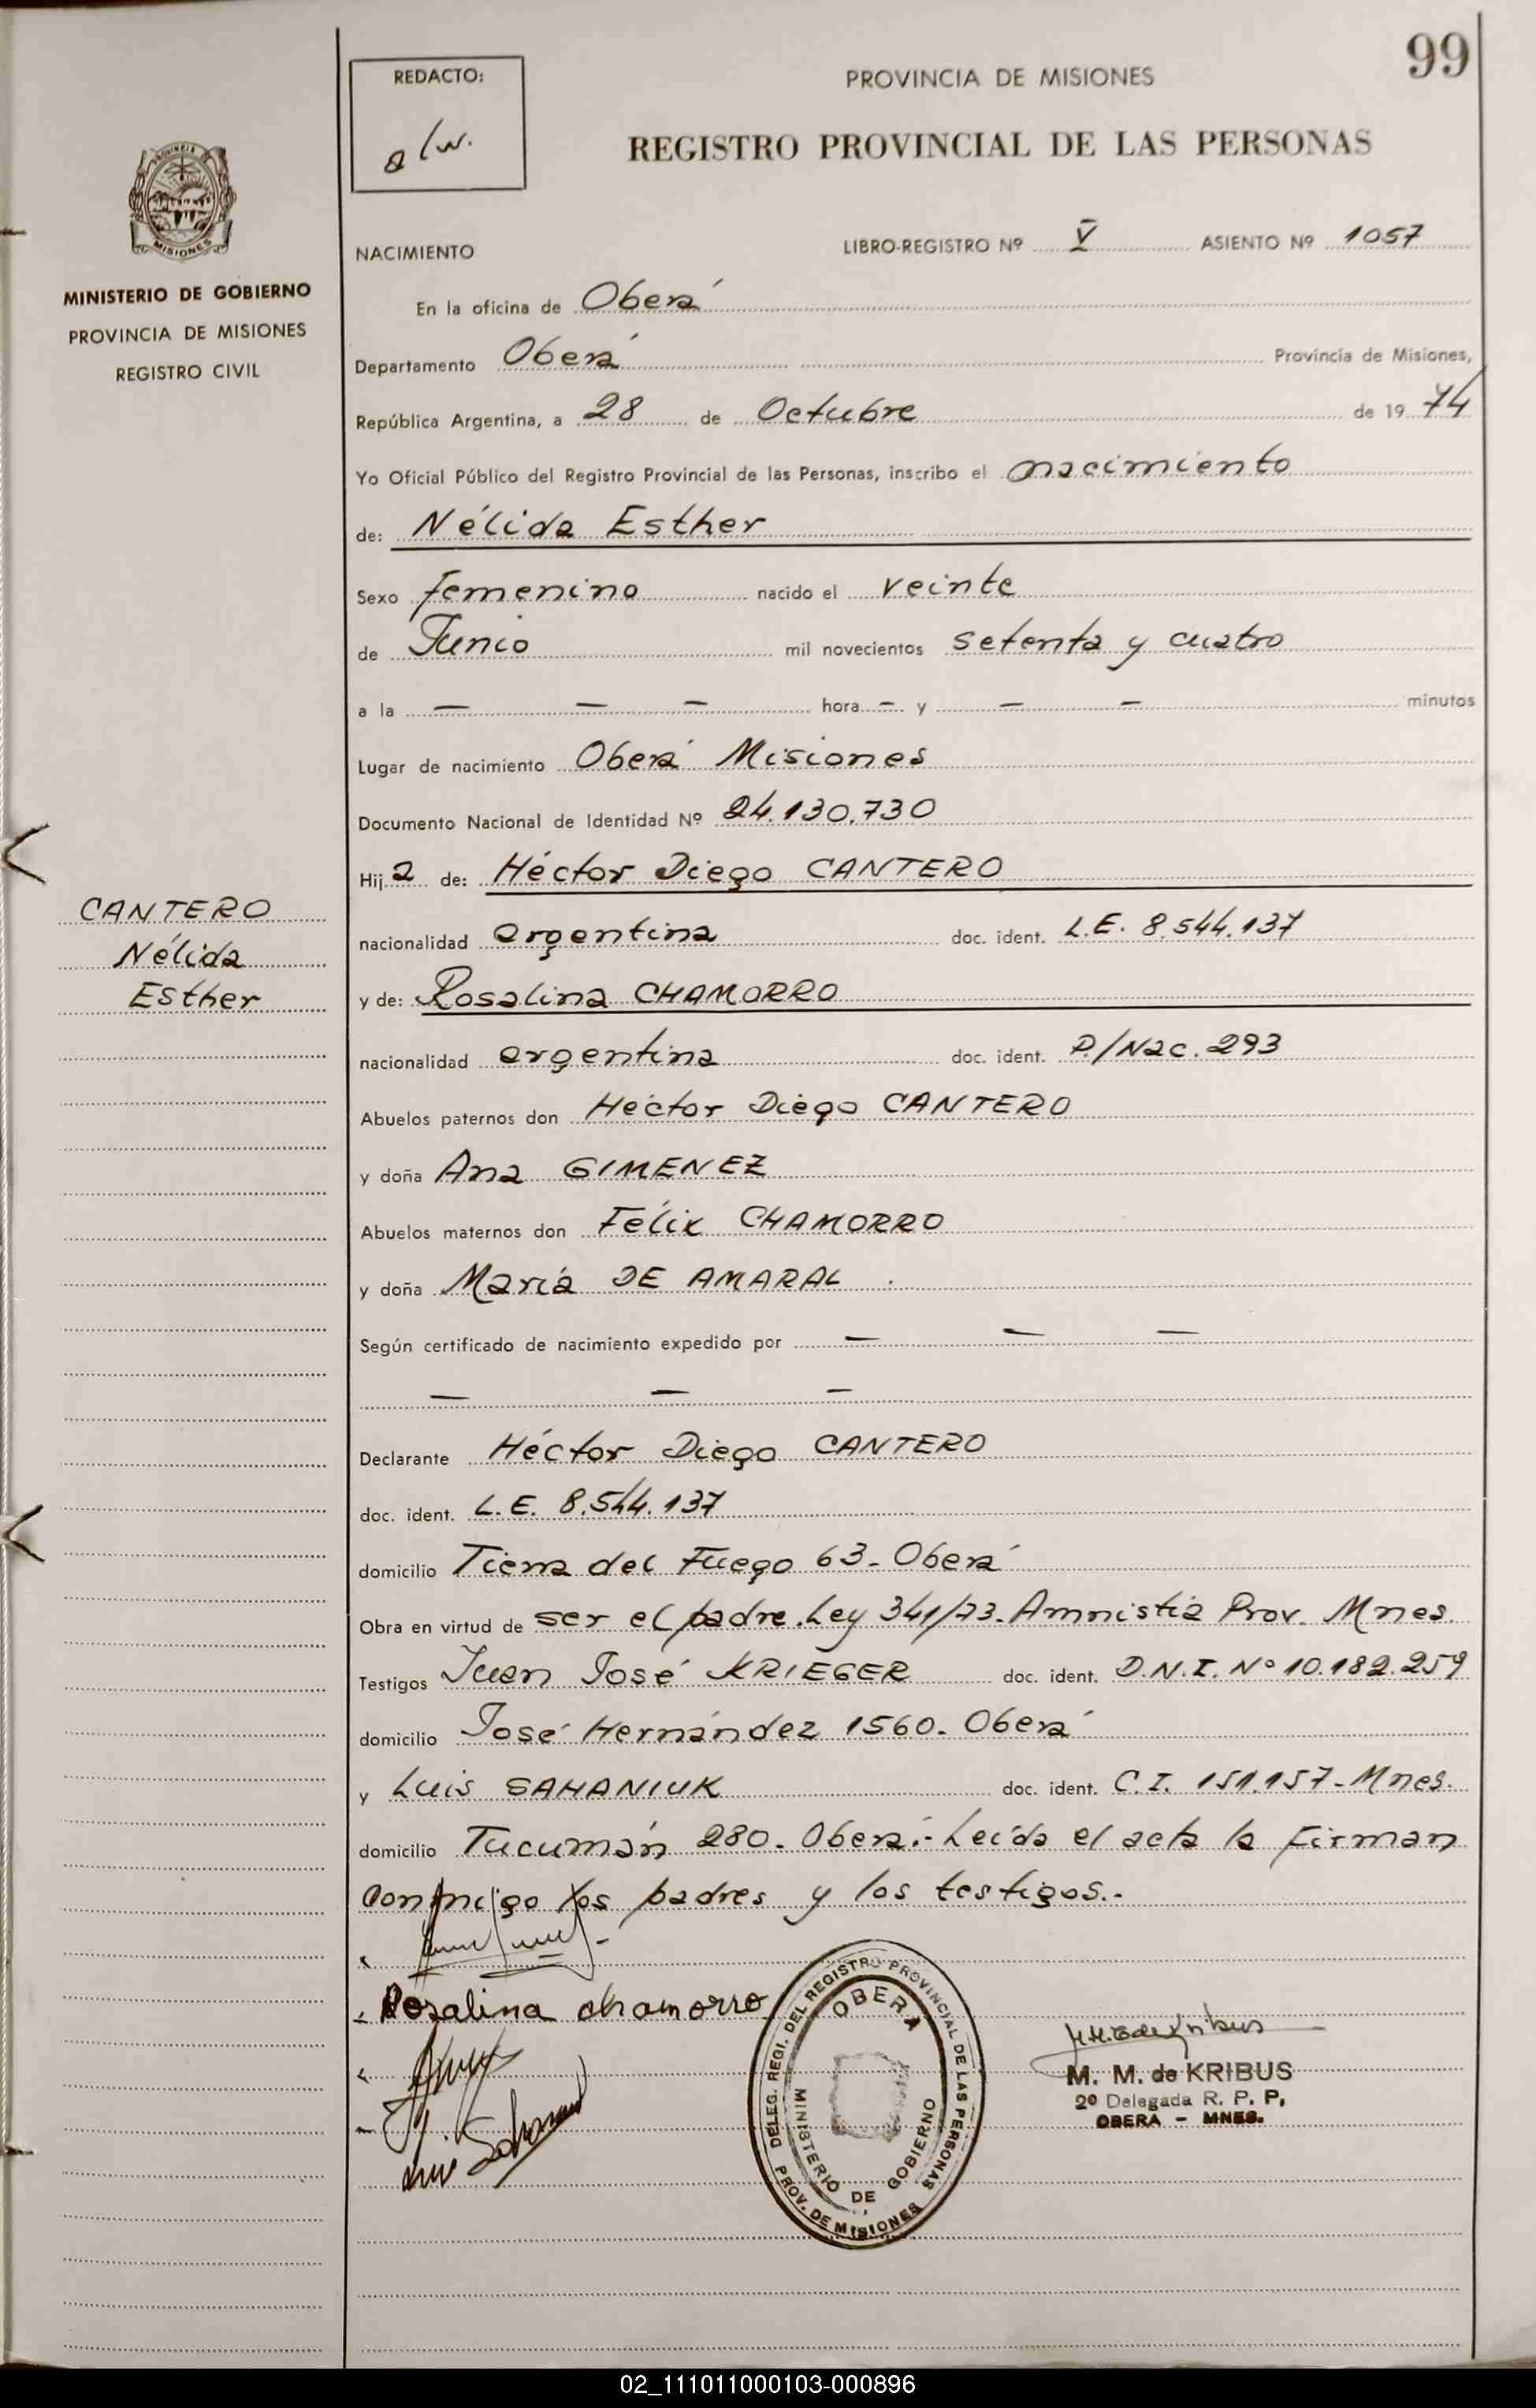 99
REDACTO:
a/w.
PROVINCIA DE MISIONES
REGISTRO PROVINCIAL DE LAS PERSONAS
PROVINCIA DE
MISIONES
MINISTERIO DE GOBIERNO
PROVINCIA DE MISIONES
REGISTRO CIVIL
CANTERO
Nélida
Esther
NACIMIENTO LIBRO-REGISTRO Nº V ASIENTO Nº 1057
En la oficina de Oberá
Departamento Oberá Provincia de Misiones,
República Argentina, a 28 de Octubre de 1974
Yo Oficial Público del Registro Provincial de las Personas, inscribo el nacimiento
de: Nélida Esther
Sexo femenino nacido el veinte
de Junio mil novecientos setenta y cuatro
a la — — — hora — y — — minutos
Lugar de nacimiento Oberá Misiones
Documento Nacional de Identidad Nº 24.130.730
Hija de: Héctor Diego CANTERO
nacionalidad argentina doc. ident. L.E. 8.544.137
y de: Rosalina CHAMORRO
nacionalidad argentina doc. ident. P./Nac. 293
Abuelos paternos don Héctor Diego CANTERO
y doña Ana GIMENEZ
Abuelos maternos don Félix CHAMORRO
y doña María DE AMARAL .
Según certificado de nacimiento expedido por — — —
— — —
Declarante Héctor Diego CANTERO
doc. ident. L.E. 8.544.137
domicilio Tierra del Fuego 63- Oberá
Obra en virtud de ser el padre. Ley 341/73. Amnistía Prov. Mnes.
Testigos Juan José KRIEGER doc. ident. D.N.I. Nº 10.182.259
domicilio José Hernández 1560- Oberá
y Luis SAHANIUK doc. ident. C.I. 151.157- Mnes.
domicilio Tucumán 280- Oberá.- Leída el acta la firman
conmigo los padres y los testigos.-
Rosalina chamorro
DELEG. REGI. DEL REGISTRO PROVINCIAL DE LAS PERSONAS
OBERA
MINISTERIO DE GOBIERNO
PROV. DE MISIONES
M. M. de KRIBUS
2º Delegada R. P. P,
OBERA - MNES.
02_111011000103-000896